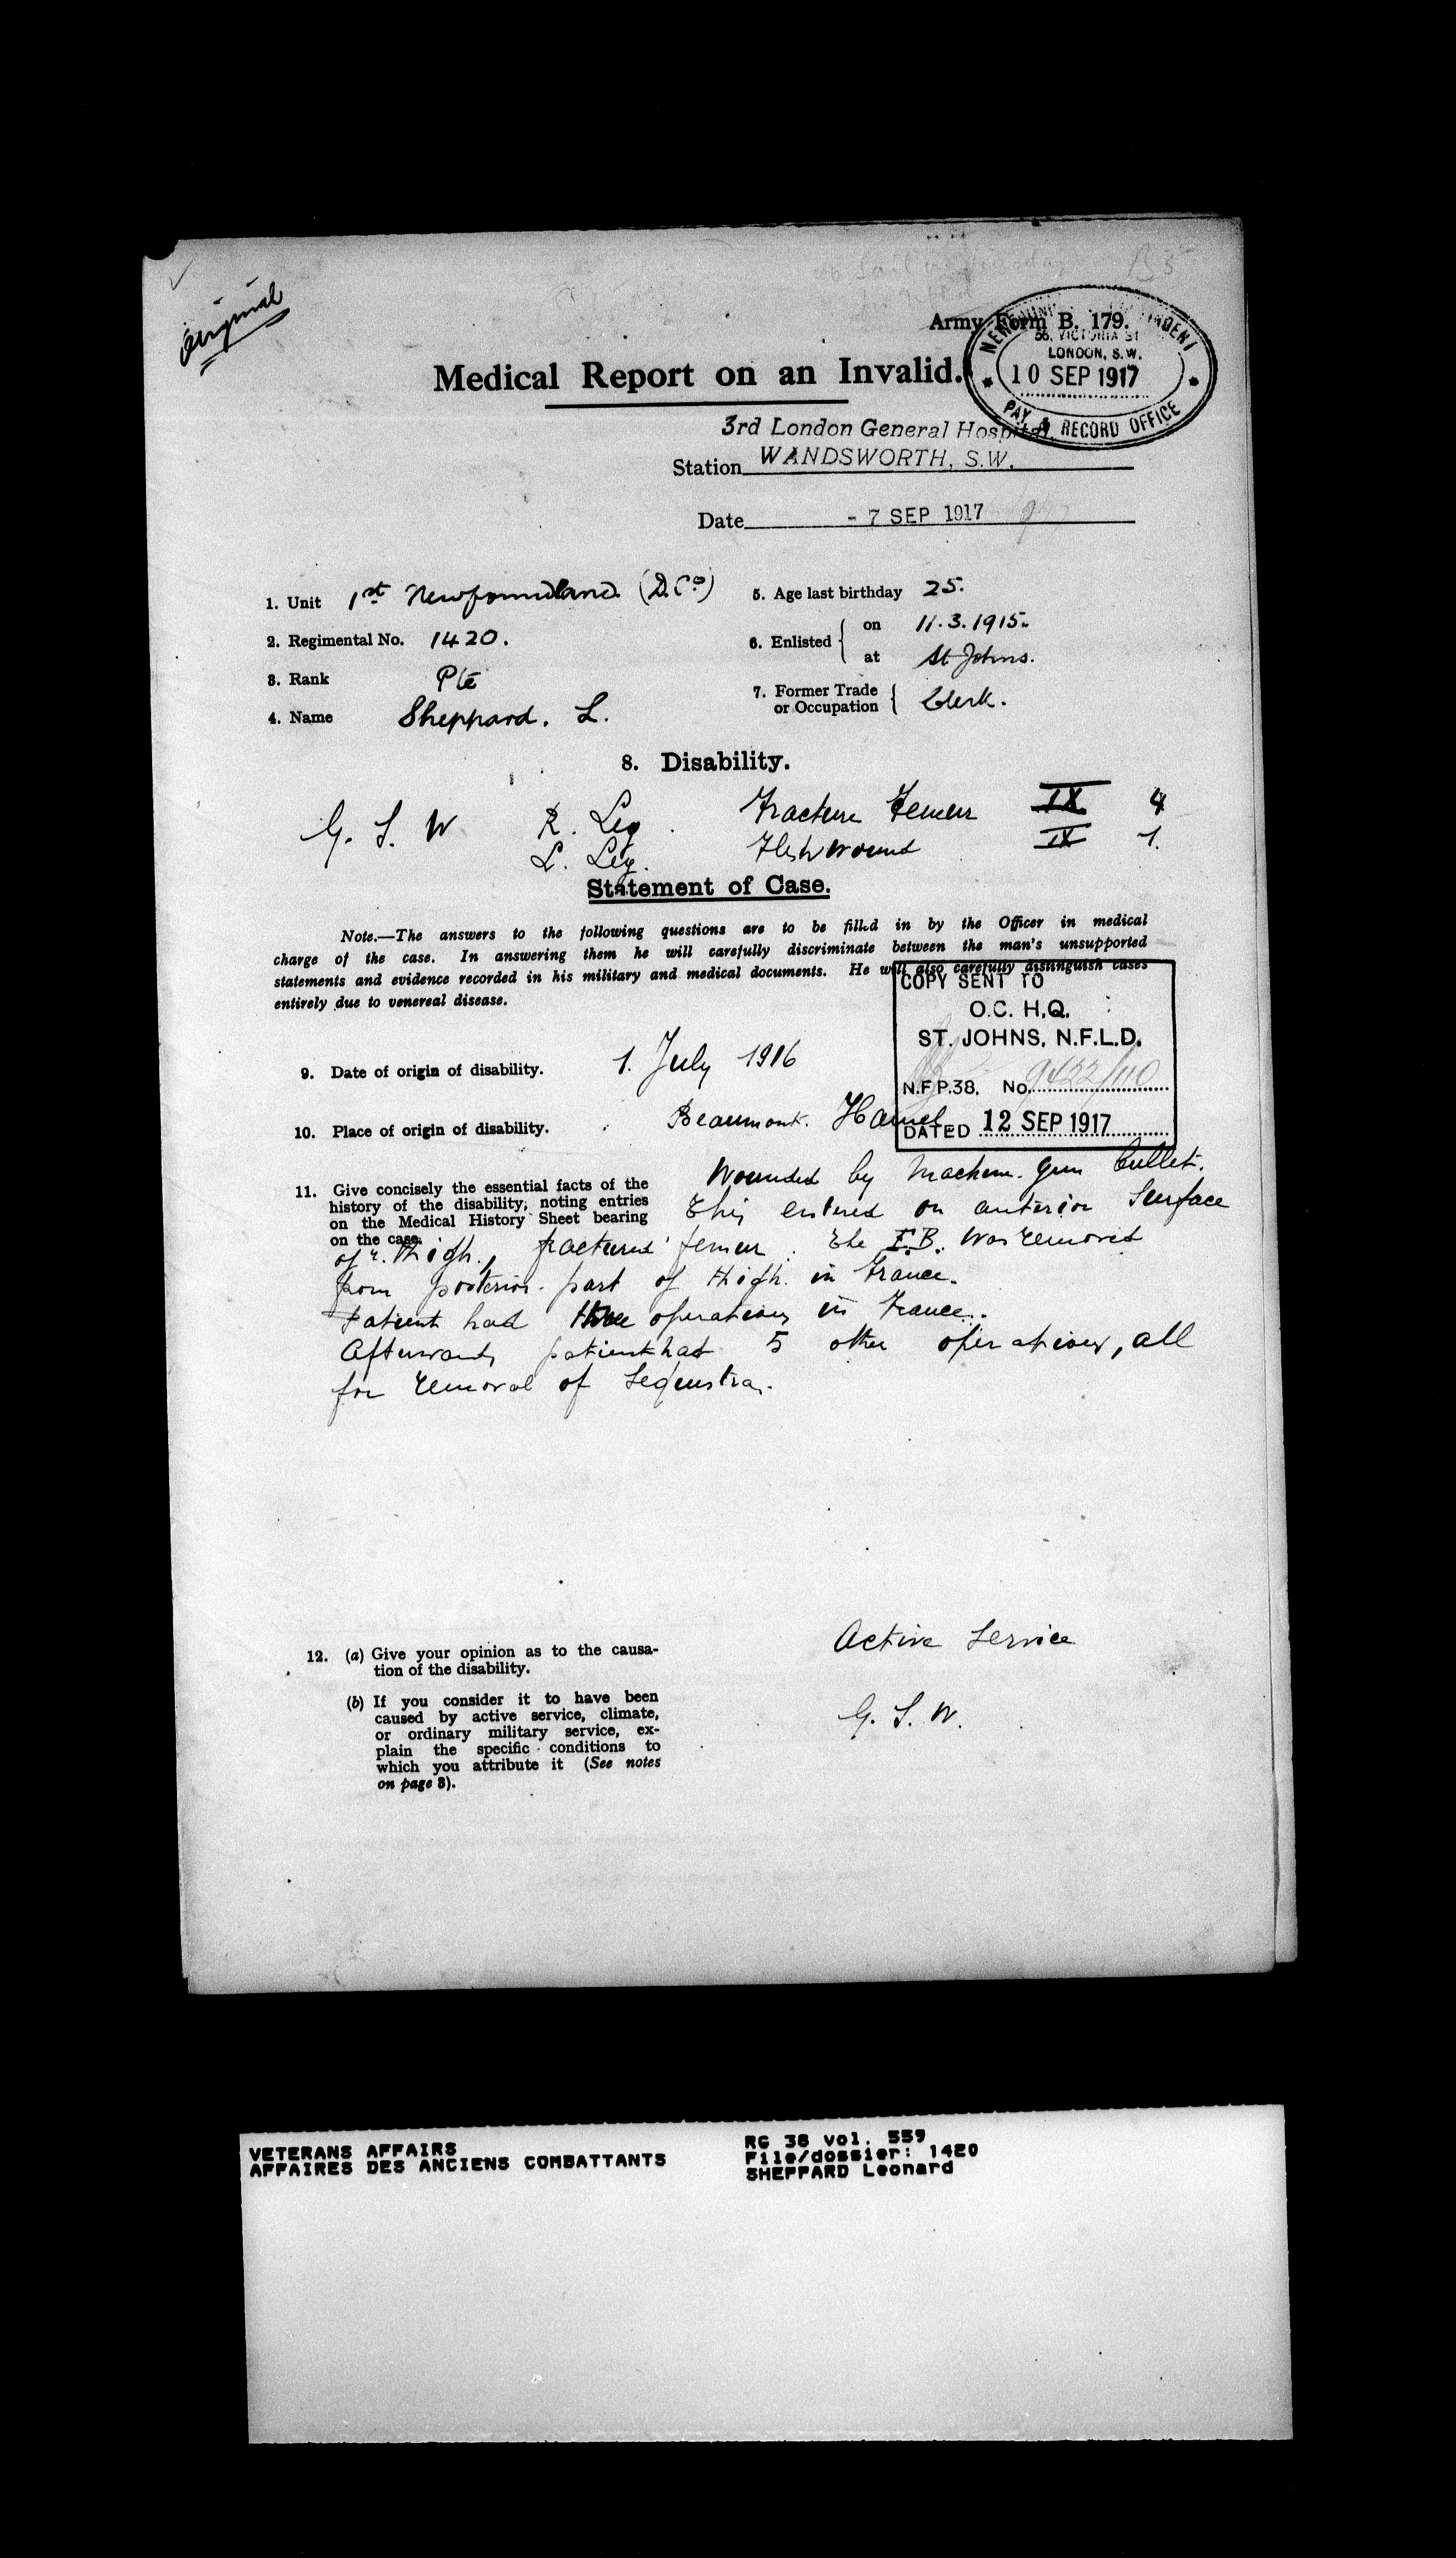 Original
Army Form B. 179.
Medical Report on an Invalid.
56, VICTORIA ST
LONDON, S.W.
10 SEP 1917
PAY & RECORD OFFICE
3rd London General Hospital,
Station WANDSWORTH, S.W.
Date - 7 SEP 1917
1. Unit 1st Newfoundland (D. Co)
2. Regimental No. 1420.
3. Rank Pte
4. Name Sheppard. L.
5. Age last birthday 25.
6. Enlisted { on 11.3.1915.
at St Johns.
7. Former Trade
or Occupation { Clerk.
8. Disability.
G. S. W R. Leg. Fracture Femur IX 4
L. Leg. Flesh wound IX 1.
Statement of Case.
Note.—The answers to the following questions are to be filled in by the Officer in medical
charge of the case. In answering them he will carefully discriminate between the man's unsupported
statements and evidence recorded in his military and medical documents. He will also carefully distinguish cases
entirely due to venereal disease.
COPY SENT TO
O.C. H.Q.
ST. JOHNS, N.F.L.D.
N.F.P.38. No. 9422/110
DATED 12 SEP 1917
9. Date of origin of disability. 1. July 1916
10. Place of origin of disability. Beaumont. Hamel.
11. Give concisely the essential facts of the
history of the disability, noting entries
on the Medical History Sheet bearing
on the case.
Wounded by Machine. gun bullet.
This entered on anterior Surface
of r. thigh, fractured femur. The F.B. was removed
from posterior part of thigh. in France.
Patient had three operations in France.
Afterwards patient had 5 other operations, all
for removal of Sequestra.
12. (a) Give your opinion as to the causa-
tion of the disability.
Active Service
(b) If you consider it to have been
caused by active service, climate,
or ordinary military service, ex-
plain the specific conditions to
which you attribute it (See notes
on page 3).
G. S. W.
VETERANS AFFAIRS
AFFAIRES DES ANCIENS COMBATTANTS
RG 38 Vol. 559
File/dossier: 1420
SHEPPARD Leonard